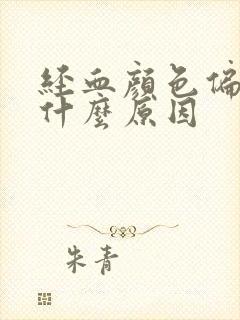 經血顏色偏
什麼原因
朱青